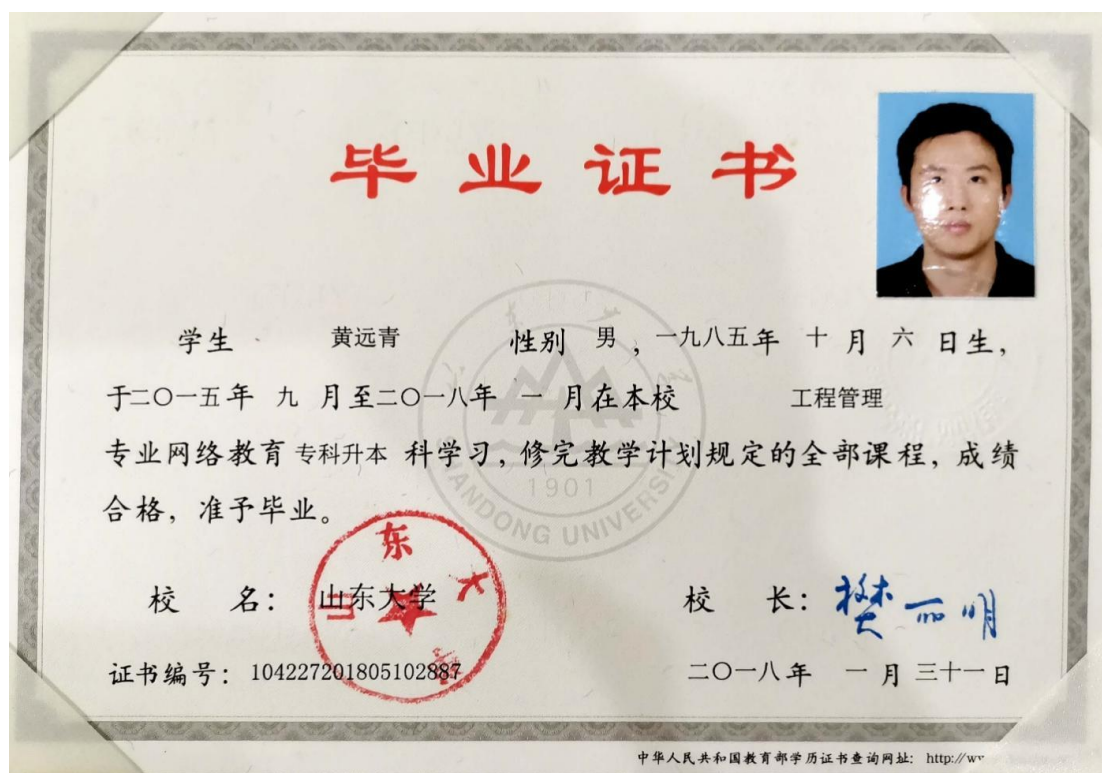 毕业证书
学生 黄远青 性别 男，一九八五年 十 月 六 日生，
于二〇一五年 九 月至二〇一八年 一 月在本校 工程管理
专业网络教育 专科升本 科学习，修完教学计划规定的全部课程，成绩
合格，准予毕业。
1901
SHANDONG UNIVERSITY
校 名： 山东大学
山东大学
校 长： 樊丽明
证书编号： 104227201805102887
二〇一八年 一 月 三十一日
中华人民共和国教育部学历证书查询网址： http://w